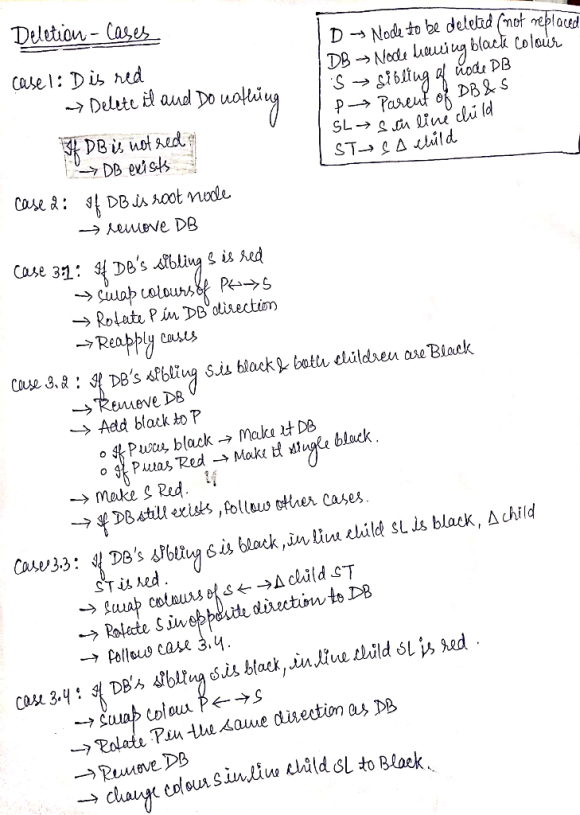 Deletion - Cases
D → Node to be deleted (not replaced
DB → Node having black colour
S → sibling of node DB
P → Parent of DB & S
SL → S in line child
ST → S Δ child
Case 1: D is red
→ Delete it and Do nothing
If DB is not red
→ DB exists
Case 2: If DB is root node
→ remove DB
Case 3.1: If DB's sibling S is red
→ Swap colours of P ↔ S
→ Rotate P in DB direction
→ Reapply cases
Case 3.2: If DB's sibling S is black & both children are Black
→ Remove DB
→ Add black to P
o If P was black → Make it DB
o If P was Red → Make it single black.
→ Make S Red.
→ If DB still exists, follow other cases.
Case 3.3: If DB's sibling S is black, in line child SL is black, Δ child
ST is red.
→ Swap colours of S ↔ Δ child ST
→ Rotate S in opposite direction to DB
→ follow case 3.4.
Case 3.4: If DB's sibling S is black, in line child SL is red.
→ Swap colour P ↔ S
→ Rotate P in the same direction as DB
→ Remove DB
→ Change colour S in line child SL to Black.